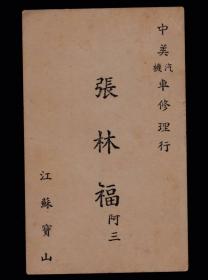 中美汽機車修理行
張林福
阿三
江蘇寶山